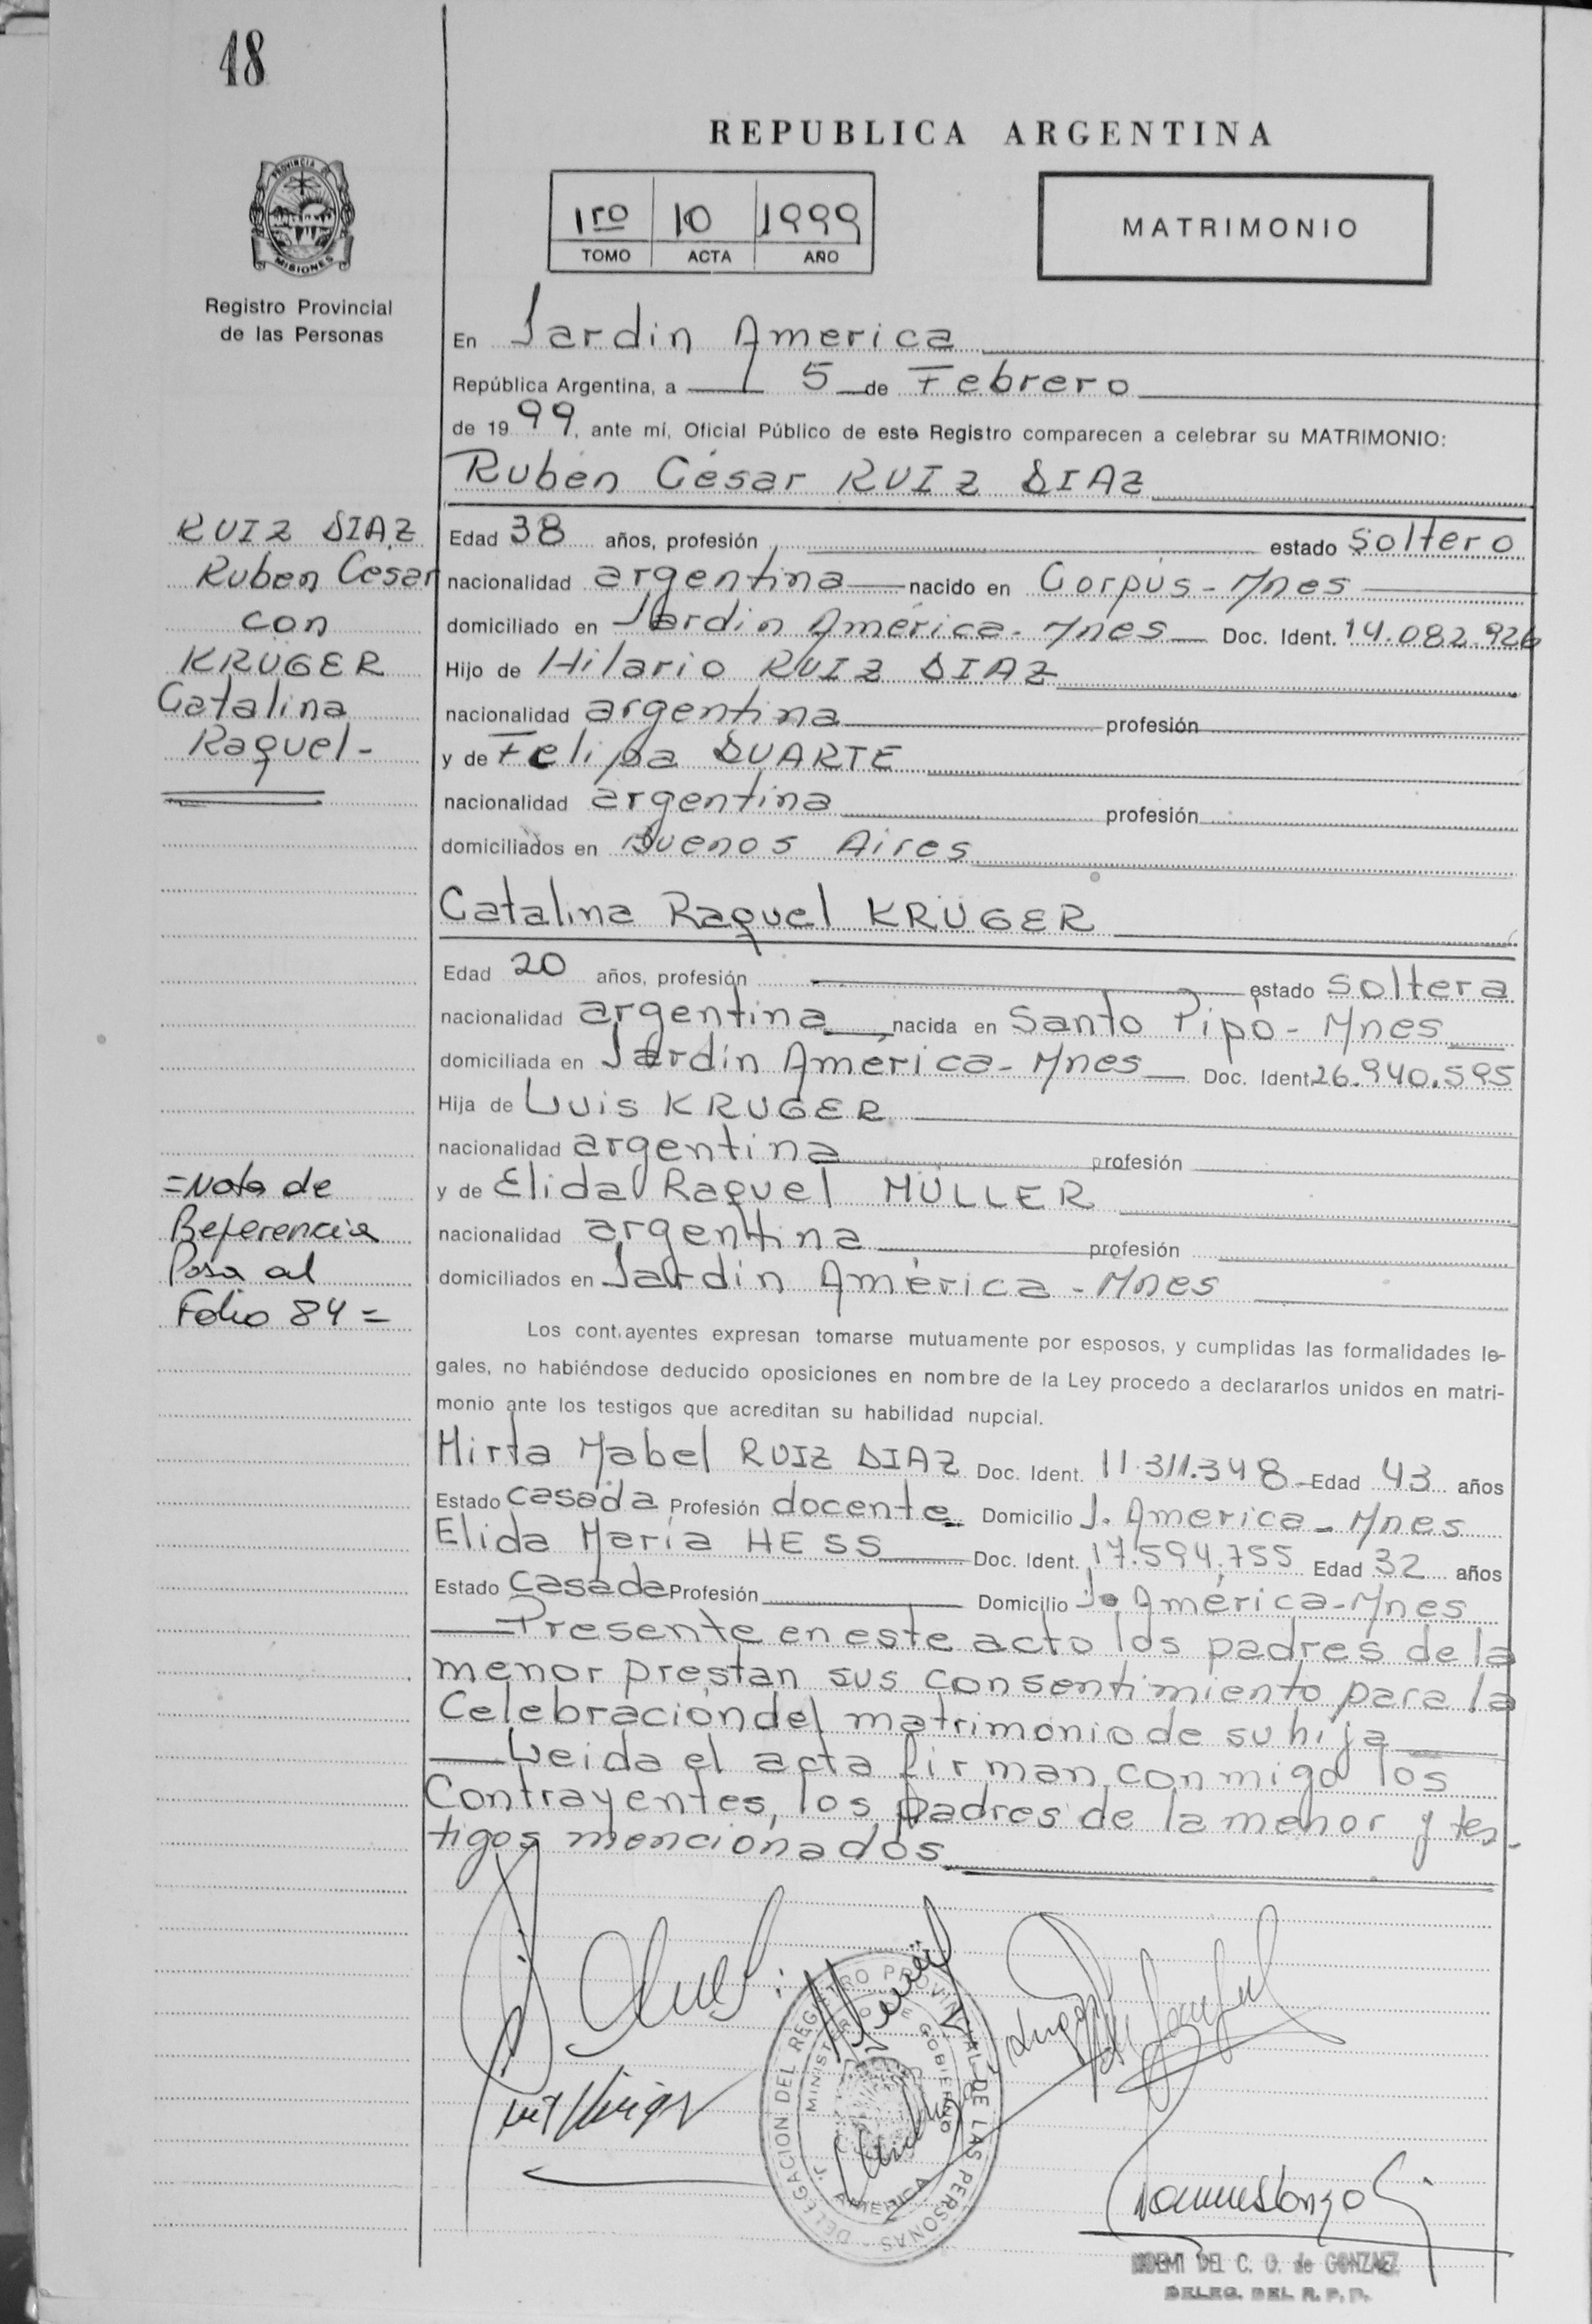 48
REPUBLICA ARGENTINA
1ro 10 1999
TOMO ACTA AÑO
MATRIMONIO
PROVINCIA DE
MISIONES
Registro Provincial
de las Personas
En Jardin America
República Argentina, a 5 de Febrero
de 1999, ante mí, Oficial Público de este Registro comparecen a celebrar su MATRIMONIO:
Rubén César RUIZ DIAZ
RUIZ DIAZ
Ruben César
con
KRUGER
Catalina
Raquel-
Edad 38 años, profesión estado soltero
nacionalidad argentina nacido en Corpus - Mnes
domiciliado en Jardin América - Mnes Doc. Ident. 14.082.926
Hijo de Hilario RUIZ DIAZ
nacionalidad argentina profesión
y de Felipa DUARTE
nacionalidad argentina profesión
domiciliados en Buenos Aires
Catalina Raquel KRÜGER
Edad 20 años, profesión estado soltera
nacionalidad argentina nacida en Santo Pipó - Mnes
domiciliada en Jardin América - Mnes Doc. Ident 26.940.595
Hija de Luis KRUGER
nacionalidad argentina profesión
y de Elida Raquel MÜLLER
nacionalidad argentina profesión
domiciliados en Jardin América - Mnes
=Nota de
Referencia
Pasa al
Folio 84=
Los contrayentes expresan tomarse mutuamente por esposos, y cumplidas las formalidades le-
gales, no habiéndose deducido oposiciones en nombre de la Ley procedo a declararlos unidos en matri-
monio ante los testigos que acreditan su habilidad nupcial.
Mirta Mabel RUIZ DIAZ Doc. Ident. 11.311.348 Edad 43 años
Estado casada Profesión docente Domicilio J. America - Mnes
Elida María HESS Doc. Ident. 17.594.755 Edad 32 años
Estado casada Profesión Domicilio J. América - Mnes
Presente en este acto los padres de la
menor prestan sus consentimiento para la
Celebración del matrimonio de su hija
Leida el acta firman conmigo los
Contrayentes, los padres de la menor y tes-
tigos mencionados
DELEGACION DEL REGISTRO PROVINCIAL DE LAS PERSONAS
MINISTERIO DE GOBIERNO
J. AMERICA
DEL C. O. de GONZALEZ
DELEG. DEL R. P. P.